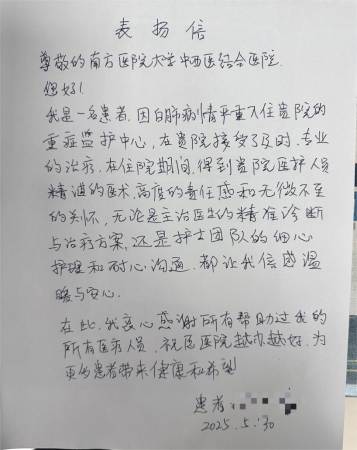 表扬信
尊敬的南方医院大学中西医结合医院.
您好!
我是一名患者,因白肺病情严重入住贵院的
重症监护中心,在贵院接受了及时、专业
的治疗.在住院期间,得到贵院医护人员
精湛的医术,高度的责任感和无微不至
的关怀,无论是主治医生的精准诊断
与治疗方案,还是护士团队的细心
护理和耐心沟通,都让我倍感温
暖与安心.
在此,我衷心感谢所有帮助过我的
所有医疗人员,祝愿医院越办越好,为
更多患者带来健康和希望
患者
2025.5.30